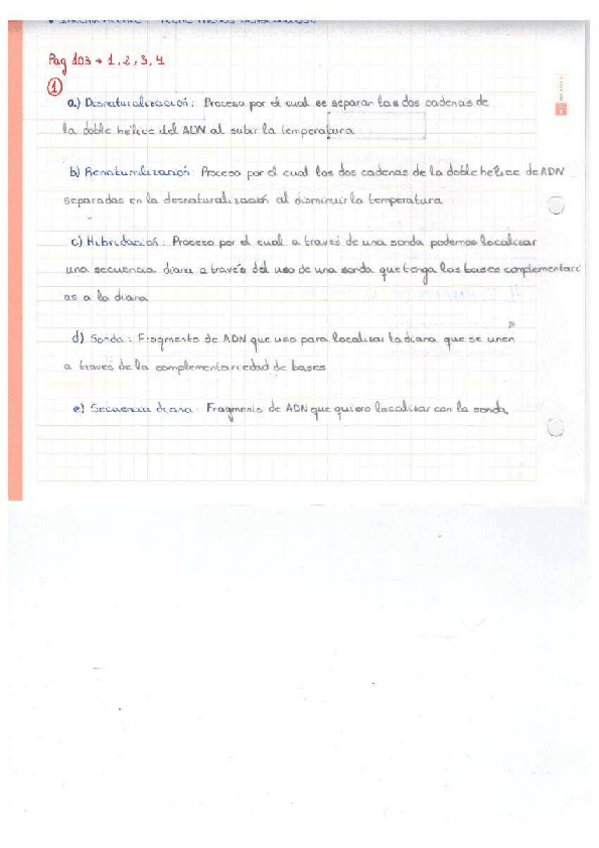 Pag 103 → 1, 2, 3, 4
1
a) Desnaturalización: Proceso por el cual se separar las dos cadenas de
la doble hélice del ADN al subir la temperatura
b) Renaturalización: Proceso por el cual las dos cadenas de la doble hélice de ADN
separadas en la desnaturalización al disminuir la temperatura
c) Hibridación: Proceso por el cual a través de una sonda podemos localizar
una secuencia diana a través del uso de una sonda que tenga las bases complementari
as a la diana
d) Sonda: Fragmento de ADN que uso para localizar la diana que se unen
a través de la complementariedad de bases
e) Secuencia diana: Fragmento de ADN que quiero localizar con la sonda